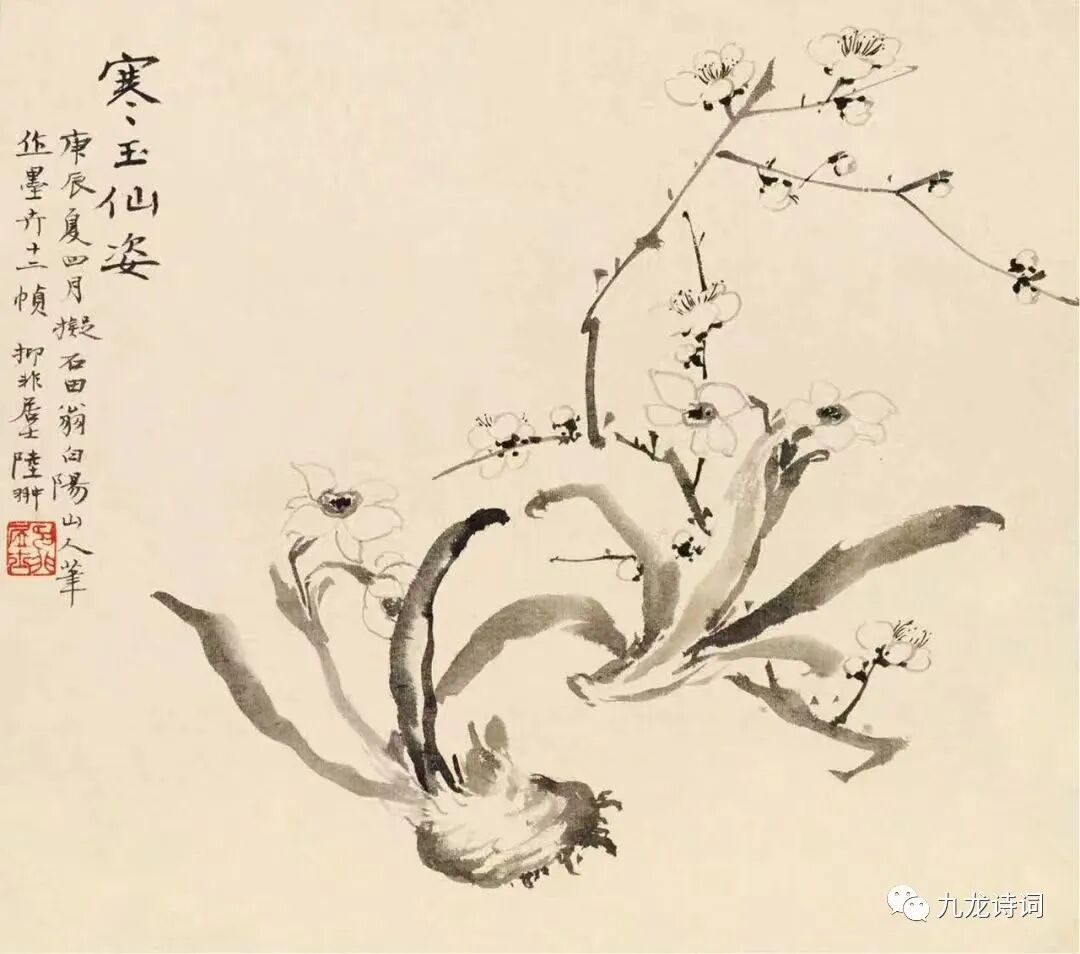 寒玉仙姿
庚辰夏四月擬石田翁白陽山人筆
作墨卉十二幀 抑非居士陸翀
九龙诗词